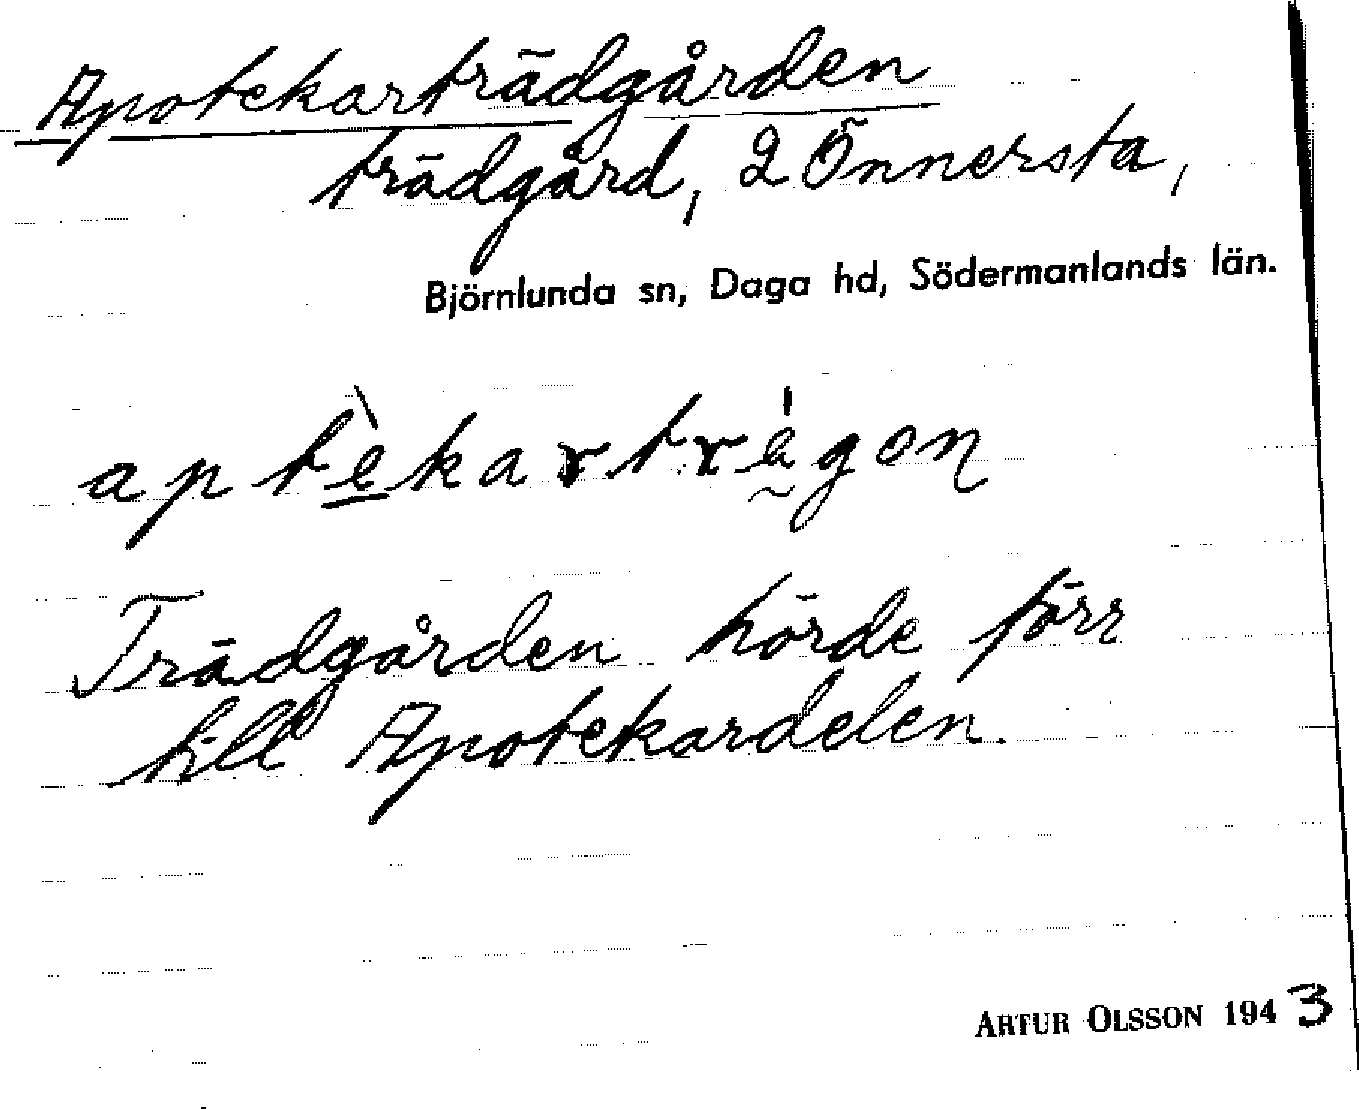 Apotekarträdgården
trädgård, 2 Önnersta,
Björnlunda sn, Daga hd, Södermanlands län.
aptèkarträgen
Trädgården hörde förr
till Apotekardelen.
ARTUR OLSSON 1943